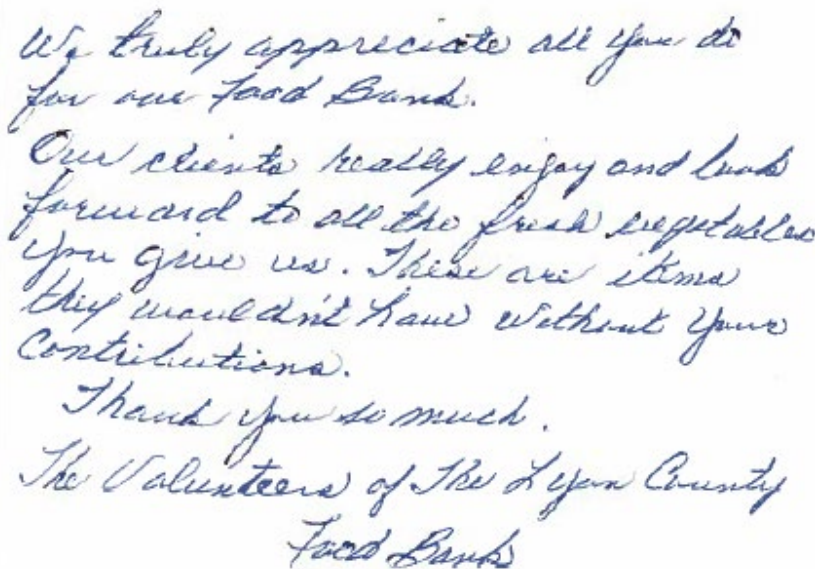 We truly appreciate all you do
for our Food Bank.
Our clients really enjoy and look
forward to all the fresh vegetables
you give us. These are items
they wouldn't have without your
contributions.
Thank you so much.
The Volunteers of The Lyon County
Food Bank